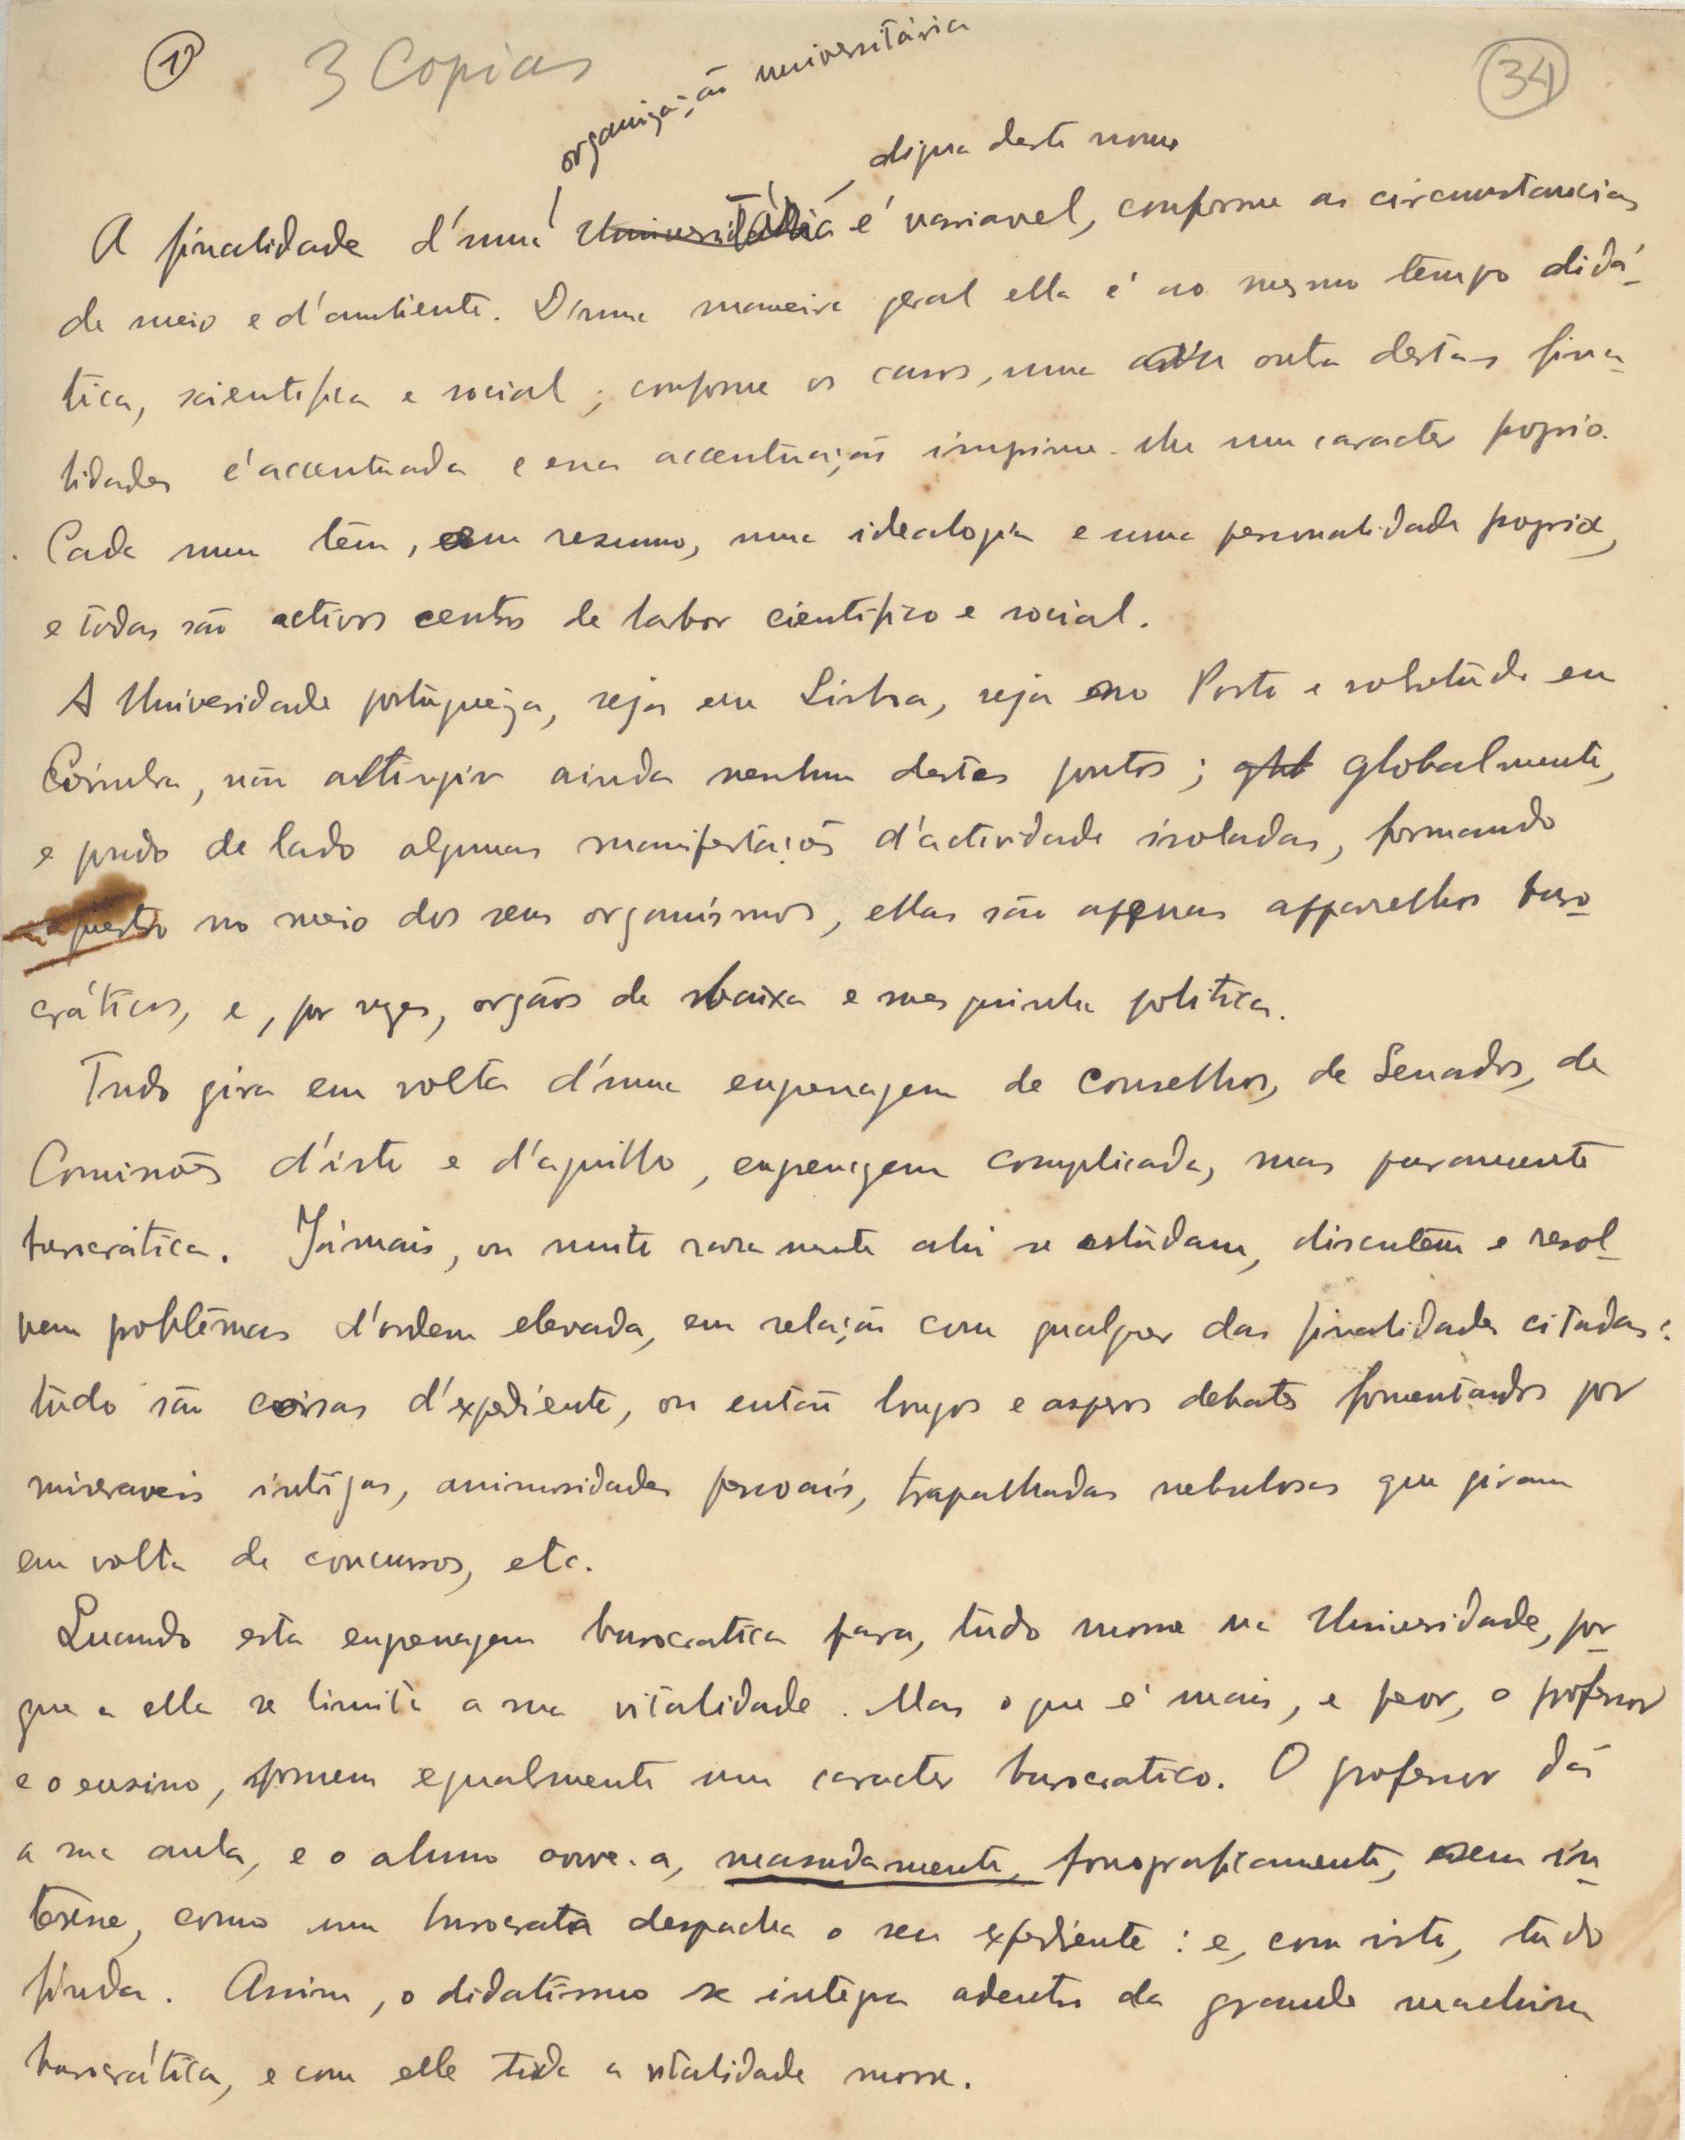 1º 3 Copias 34
organização universitária
digna deste nome
A finalidade d'uma Universidade é variavel, conforme as circumstancias
de meio e d'ambiente. D'uma maneira geral ella é ao mesmo tempo didá-
tica, scientifica e social; conforme os casos, uma ou outra destas fina-
lidades é accentuada e essa accentuação imprime-lhe um caracter proprio.
Cada uma tem, em resumo, uma idealogia e uma personalidade propria,
e todas são activos centros de labor cientifico e social.
A Universidade portugueza, seja em Lisboa, seja no Porto e sobretudo em
Coimbra, não attingiu ainda nenhum destes pontos; globalmente,
e pondo de lado algumas manifestações d'actividade isoladas, formando
no meio dos seus organismos, ellas são apenas apparelhos buro-
cráticos, e, por vezes, orgãos de baixa e mesquinha politica.
Tudo gira em volta d'uma engrenagem de Conselhos, de Senados, de
Comissões d'isto e d'aquillo, engrenagem complicada, mas puramente
burocrática. Jámais, ou muito raramente ahi se estudam, discutem e resol-
vem problemas d'ordem elevada, em relação com qualquer das finalidades citadas:
tudo são coisas d'expediente, ou então longos e asperos debates fomentados por
miseraveis intrigas, animosidades pessoais, trapalhadas nebulosas que giram
em volta de concursos, etc.
Quando esta engrenagem burocratica para, tudo morre na Universidade, por-
que a ella se limita a sua vitalidade. Mas o que é mais, e peor, o professor
e o ensino, assumem egualmente um caracter burocratico. O professor dá
a sua aula, e o aluno ouve-a, massudamente, fonograficamente, sem in-
teresse, como um burocrata despacha o seu expediente: e, com isto, tudo
finda. Assim, o didatismo se integra adentro da grande machina
burocrática, e com elle toda a vitalidade morre.